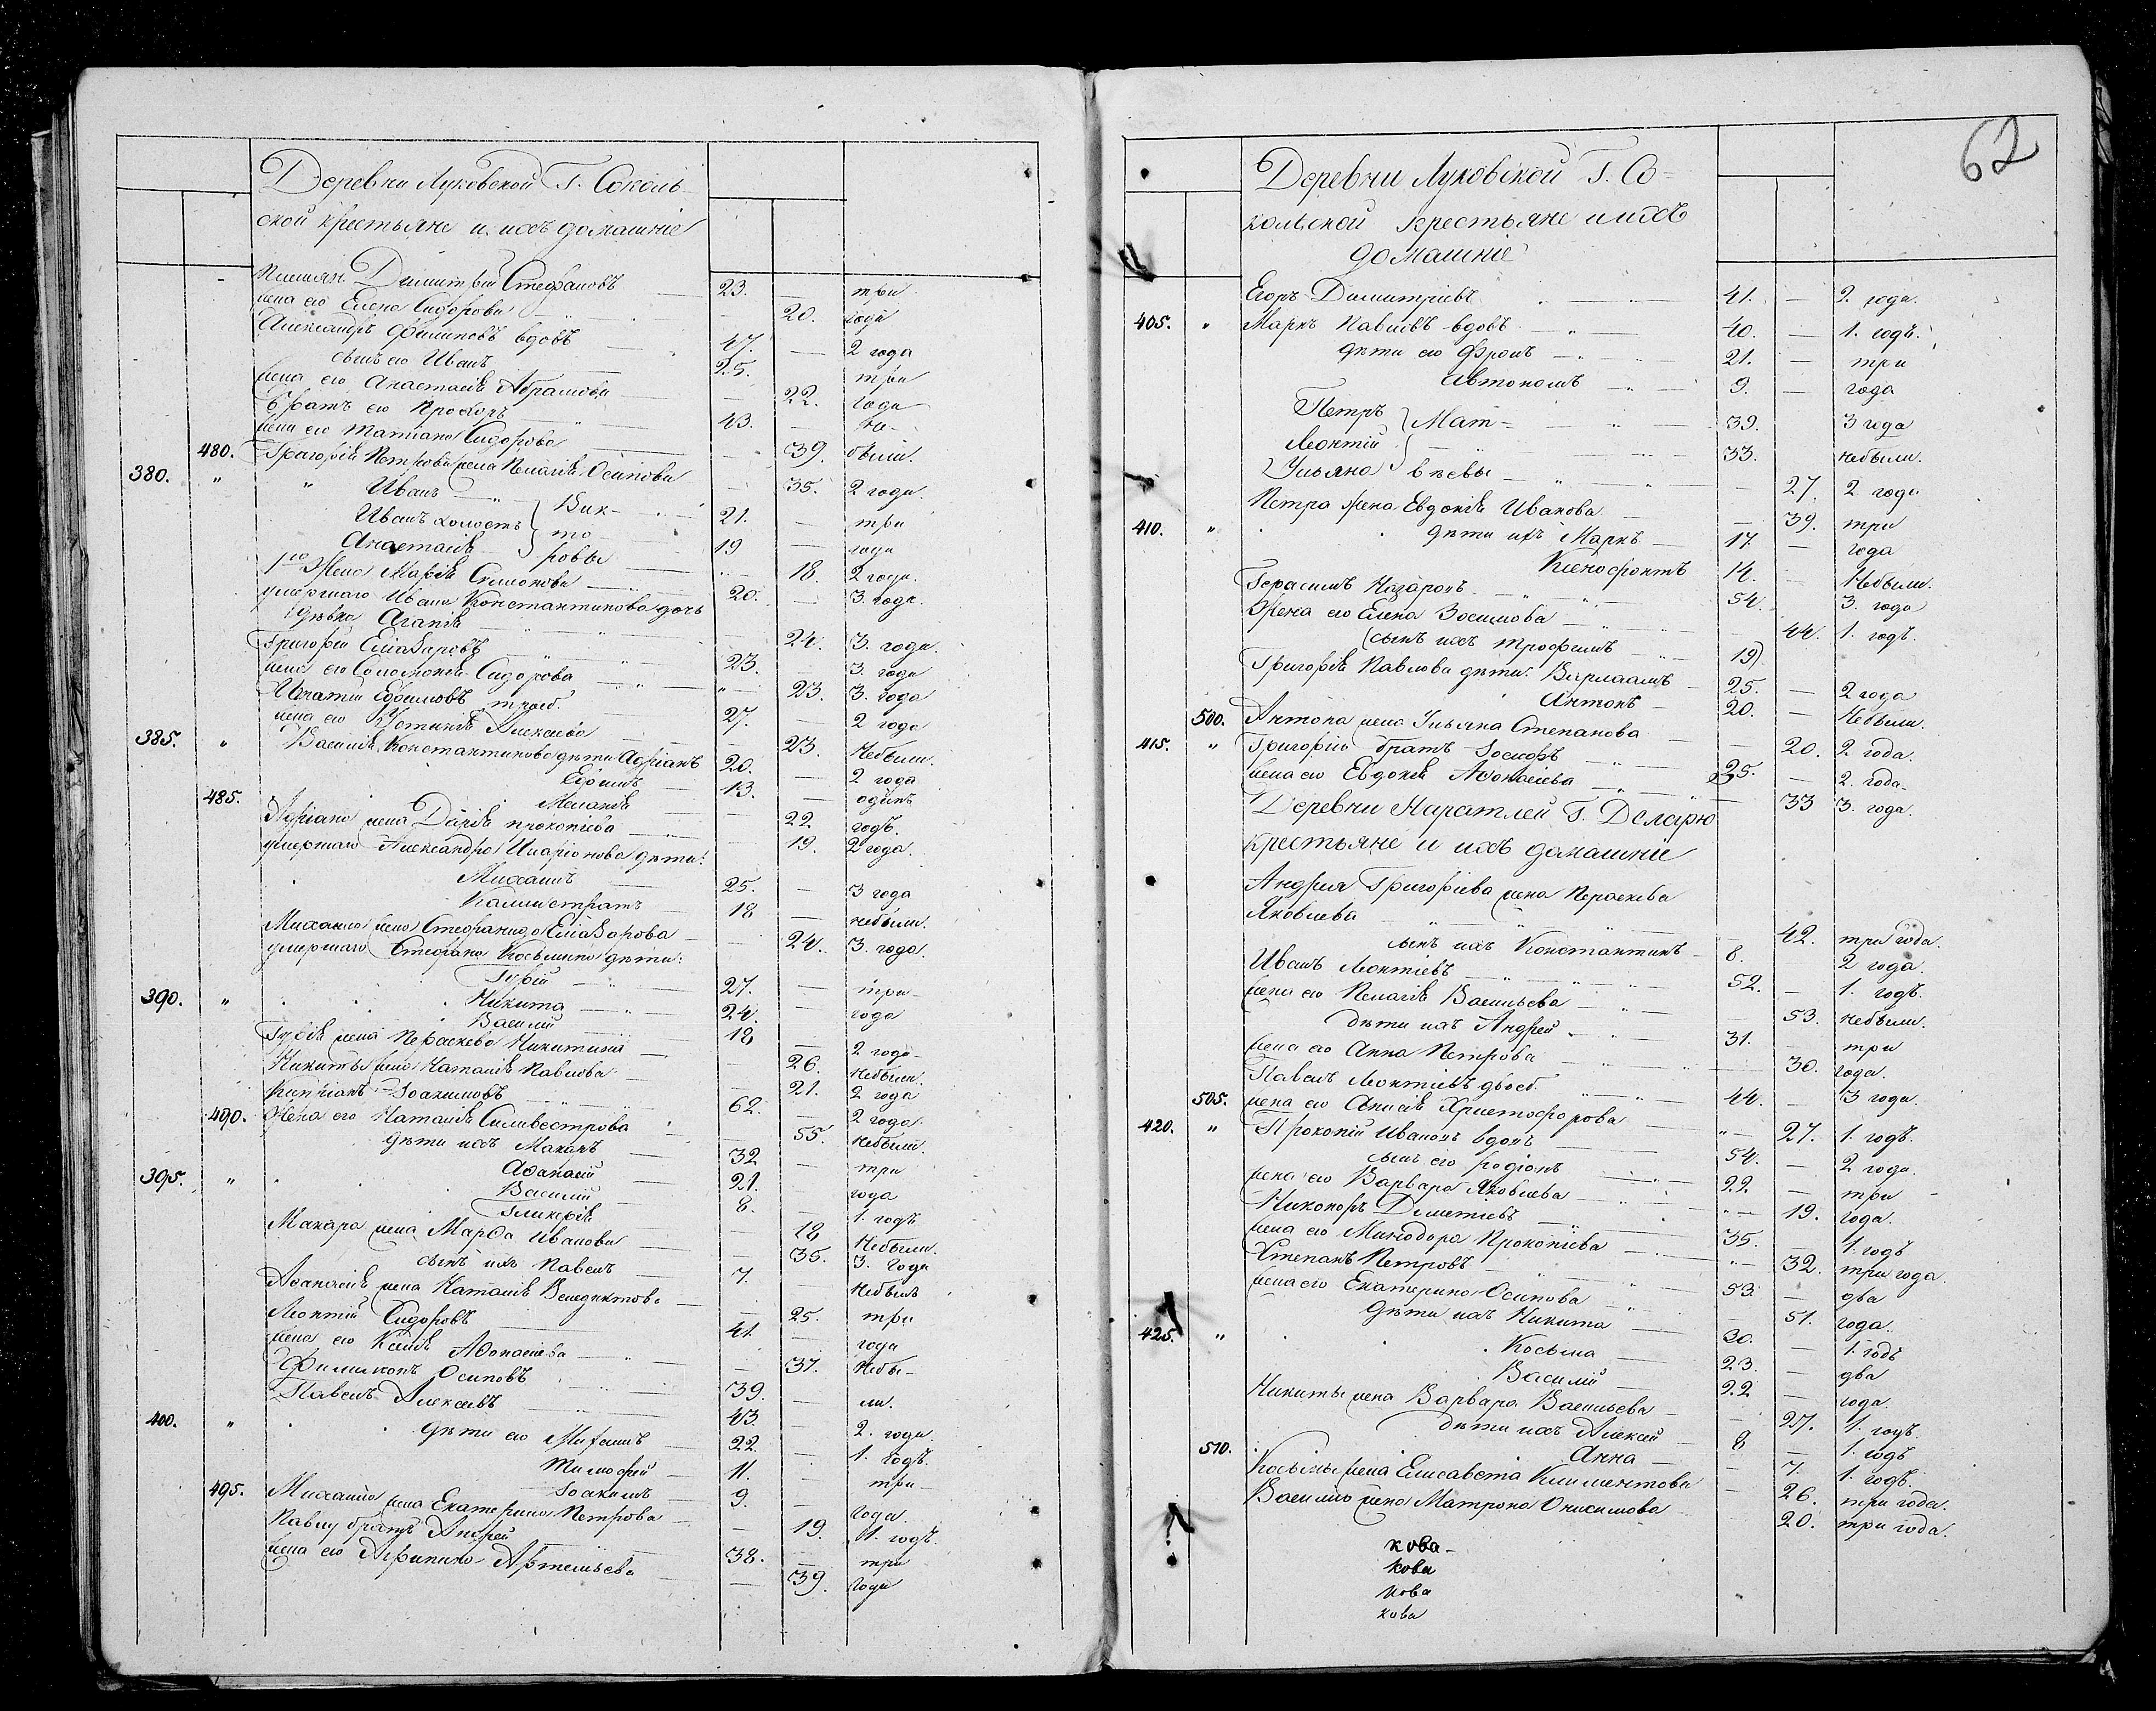 Деревни Луковской Г. Соколь-
ской крестьяне и ихъ домашніе
Димитрій Стефановъ 23. — три
жена его Елена Сидорова — 20. года
Александръ Филиповъ вдовъ 47. — 2 года
сынъ его Иванъ 25. три
жена его Анастасія Абрамова — 22. года
братъ его Прокопъ 43. — не-
жена его Татіана Сидорова — 39. были.
480. Григорія Петрова жена Пелагія Осипова — 35. 2 года.
380. " " Иванъ Вик- 21. — три
Иванъ холостъ то 19 — года
Анастасія ровы — 18. 2 года.
1го жена Марія Симонова 20. — 3. года.
умершаго Ивана Константинова дочь
дѣвка Агапія 24. 3. года.
Григорій Елиазаровъ 23. 3. года
жена его Соломонія Сидорова " 23. 3. года
Игнатій Евдокимовъ 27. — 2 года
жена его Устинія Алексеева — 23. Небыли.
385. " Василія Константинова дѣти Адріанъ 20. — 2 года
Ефимъ 13. — одинъ
485. Меланія — 22. годъ.
Адріана жена Дарія Прокопіева — 19. 2 года.
умершаго Александра Иларіонова дѣти:
Михаилъ 25. — 3 года
Калистратъ 18 — небыли.
Михаила жена Стефанида Елиазарова — 24. 3. года.
умершаго Стефана Косьмина дѣти:
Гурій 27. — три
390. " Никита 24. — года
Василій 18
Гурія жена Параскева Никитина — 26. 2 года
Никиты жена Наталія Павлова — 21. Небыли.
Кипріанъ Іоакимовъ 62. — 2 года
490. Жена его Наталія Силивестрова — 55. 2 года.
дѣти ихъ Макаръ 32 — небыли.
395. " Афанасій 21. три
Василій 8. — года
Гликерія — 18 1. годъ
Макара жена Марфа Иванова — 35. Небыли.
сынъ ихъ Павелъ 7. 3. года
Афанасія жена Наталія Венедиктова — 25. Небыли
Леонтій Сидоровъ 41. — три
жена его Ксенія Афонасіева — 37. года
Филимонъ Осиповъ 39. — Небы-
Павелъ Алексеевъ 43 ли.
400. " дѣти его Михаилъ 22. — 2. года.
Тимофей 11. — 1. годъ.
495. Іоакимъ 9. — три
Михаила жена Екатерина Петрова — 19. года.
Павлу братъ Андрей 38. — 1. годъ.
жена его Агрипина Артемьева — 39. три
года
62
Деревни Луковской Г. Со-
кольской крестьяне и ихъ
домашніе
Егоръ Димитріевъ 41. — 2. года.
405. " Маркъ Павловъ вдовъ 40. — 1. годъ.
дѣти его Фролъ 21. — три
Автономъ 9. — года
Петръ Мат- 39. 3 года
Леонтій 33. небыли.
Ульяна вѣевы — 27. 2 года
Петра жена Евдокія Иванова — 39. три
410. " дѣти ихъ Маркъ 17 — года
Ксенофонтъ 14. — Небыли.
Герасимъ Назаровъ 54. 3. года
Жена его Елена Зосимова — 44. 1. годъ.
сынъ ихъ Трофимъ 19
Григорія Павлова дѣти: Варлаамъ 25. — 2 года
Антонъ 20. — Небыли.
500. Антона жена Ульяна Степанова — 20. 2 года.
415. " Григорію братъ Іосифъ 25. — 2. года.
жена его Евдокія Афонасіева — 33 3. года.
Деревни Маратлей Г. Деларю
крестьяне и ихъ домашніе
Андрея Григоріева жена Параскева
Яковлева — 42. три года.
сынъ ихъ Константинъ 8. 2 года.
Иванъ Леонтіевъ 52. — 1. годъ.
жена его Пелагія Васильева — 53. небыли.
дѣти ихъ Андрей 31. — три
жена его Анна Петрова — 30. года.
Павелъ Леонтіевъ двоеб. 44. — 3 года.
505. жена его Анисія Христофорова — 27. 1. годъ.
420. " Прокопій Ивановъ вдовъ 54. — 2 года.
сынъ его Родіонъ 22. — три
жена его Варвара Яковлева — 19. года.
Никоноръ Дементіевъ 35. — 1. годъ
жена его Минодора Прокопіева — 32. три года.
Степанъ Петровъ 53. — два
жена его Екатерина Осипова — 51. года.
425. " дѣти ихъ Никита 30. — 1. годъ
Косьма 23. — два
Василій 22 — года.
Никиты жена Варвара Васильева — 27. 1. годъ.
дѣти ихъ Алексей 8 — 1. годъ
510. Анна — 7. 1. годъ.
Косьмы жена Елисавета Климентова — 26. три года.
Василія жена Матрона Онисимова — 20. три года.
кова
кова
кова
кова